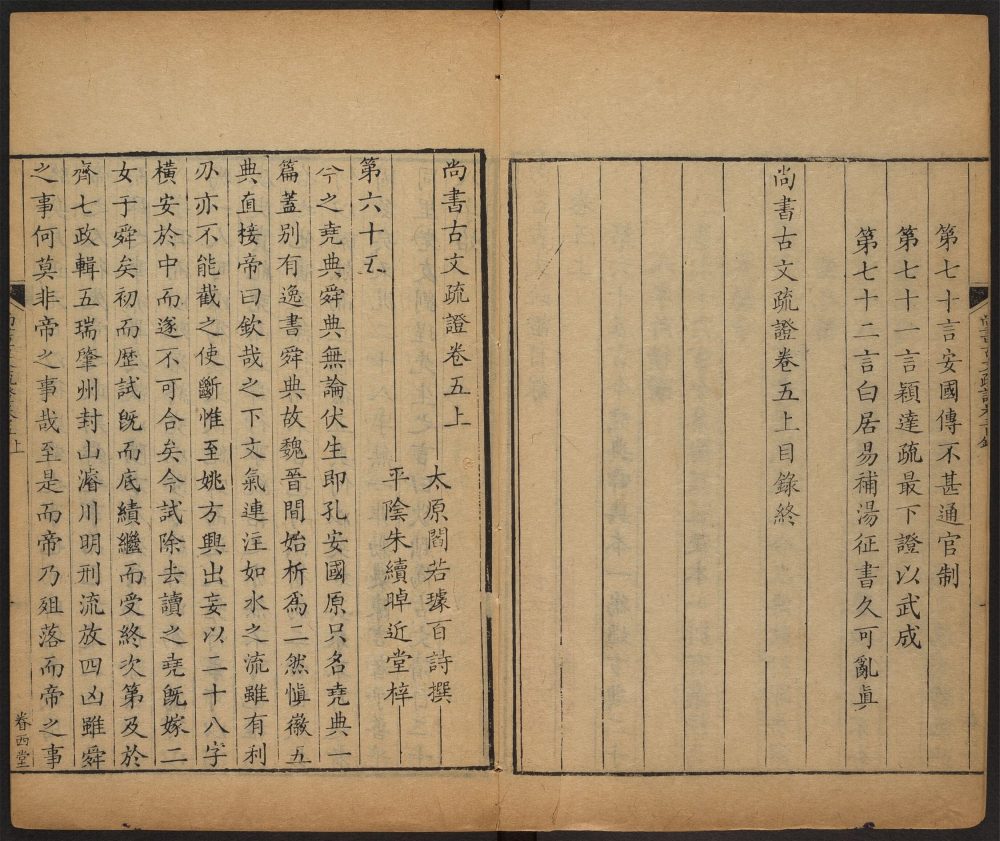 第七十言安國傳不甚通官制
第七十一言穎達疏最下證以武成
第七十二言白居易補湯征書久可亂眞
尚書古文疏證卷五上目錄終
尚書古文疏證卷五上
太原閻若璩百詩撰
平陰朱續晫近堂梓
第六十五
今之堯典舜典無論伏生即孔安國原只名堯典一
篇蓋別有逸書舜典故魏晉間始析爲二然愼徽五
典直接帝曰欽哉之下文氣連注如水之流雖有利
刅亦不能截之使斷惟至姚方興出妄以二十八字
橫安於中而遂不可合矣今試除去讀之堯旣嫁二
女于舜矣初而歷試旣而底績繼而受終次第及於
齊七政輯五瑞肇州封山濬川明刑流放四凶雖舜
之事何莫非帝之事哉至是而帝乃殂落而帝之事
眷西堂